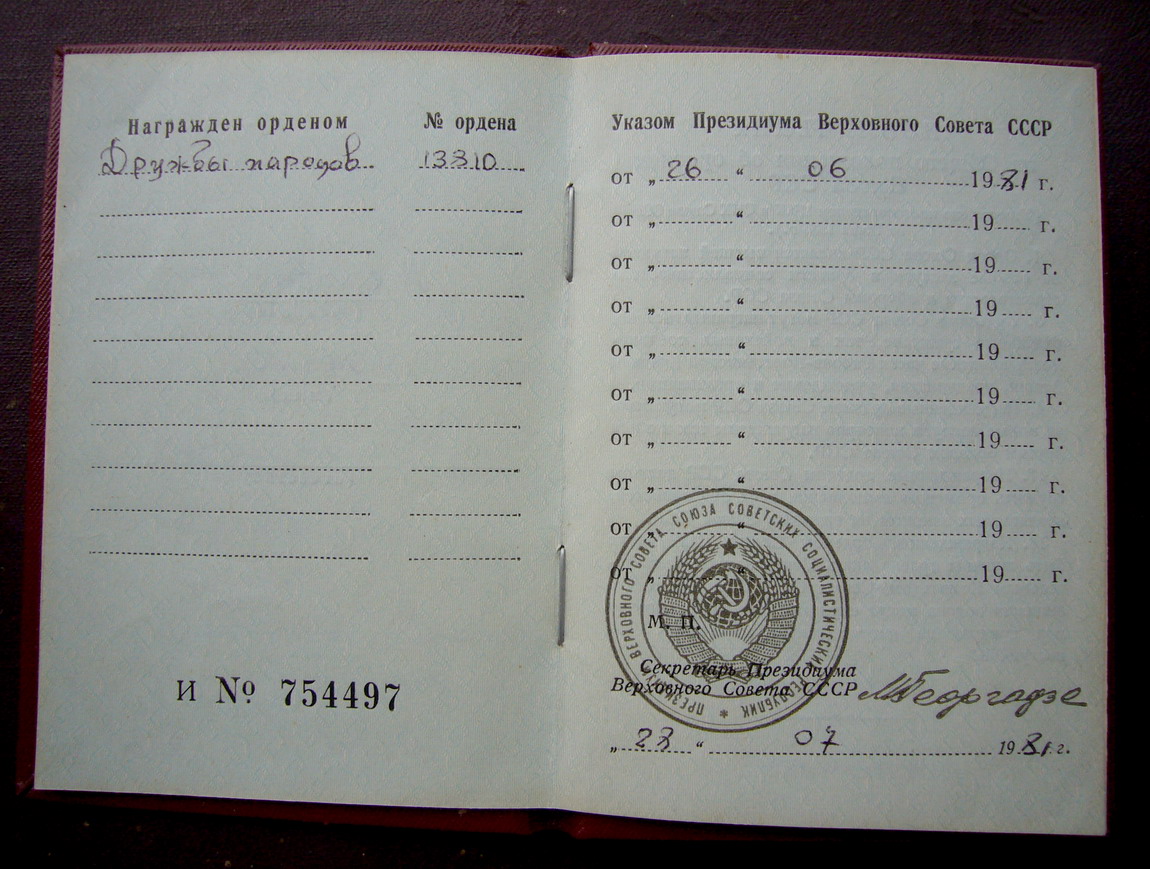 Награжден орденом № ордена
Дружбы народов 13310
И № 754497
Указом Президиума Верховного Совета СССР
от „ 26 “ 06 1981 г.
от „ “ 19 г.
от „ “ 19 г.
от „ “ 19 г.
от „ “ 19 г.
от „ “ 19 г.
от „ “ 19 г.
от „ “ 19 г.
от „ “ 19 г.
от „ “ 19 г.
ПРЕЗИДИУМ ВЕРХОВНОГО СОВЕТА СОЮЗА СОВЕТСКИХ СОЦИАЛИСТИЧЕСКИХ РЕСПУБЛИК *
М. П.
Секретарь Президиума
Верховного Совета СССР МГеоргадзе
„ 23 “ 07 1981 г.